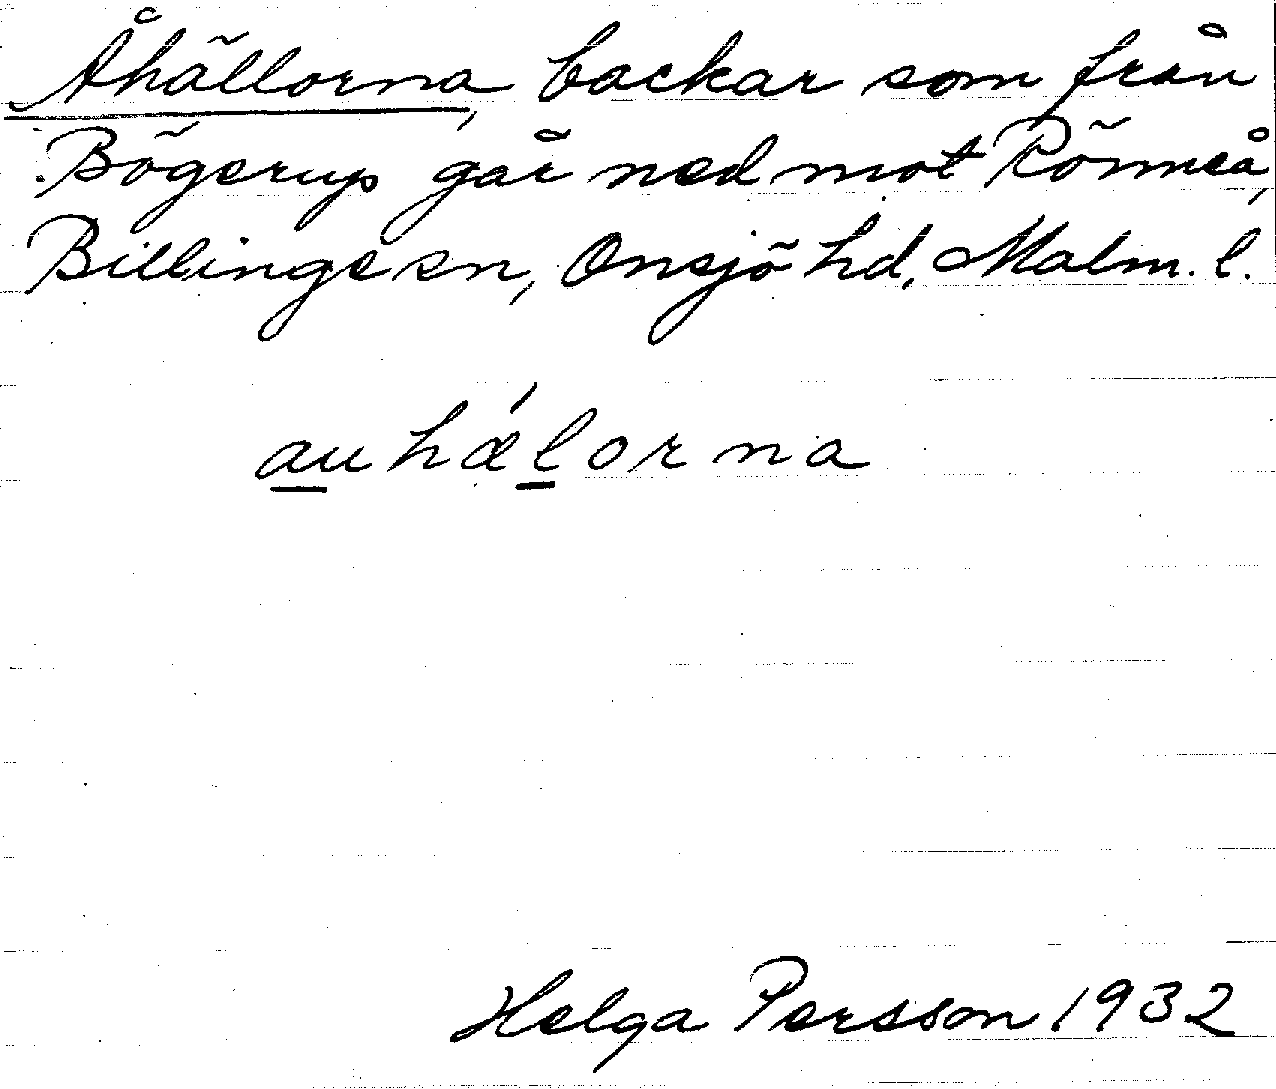 Åhällorna, backar som från
Bögerup går ned mot Rönneå,
Billinge sn, Onsjö hd, Malm. l.
au hǽlorna
Helga Persson 1932